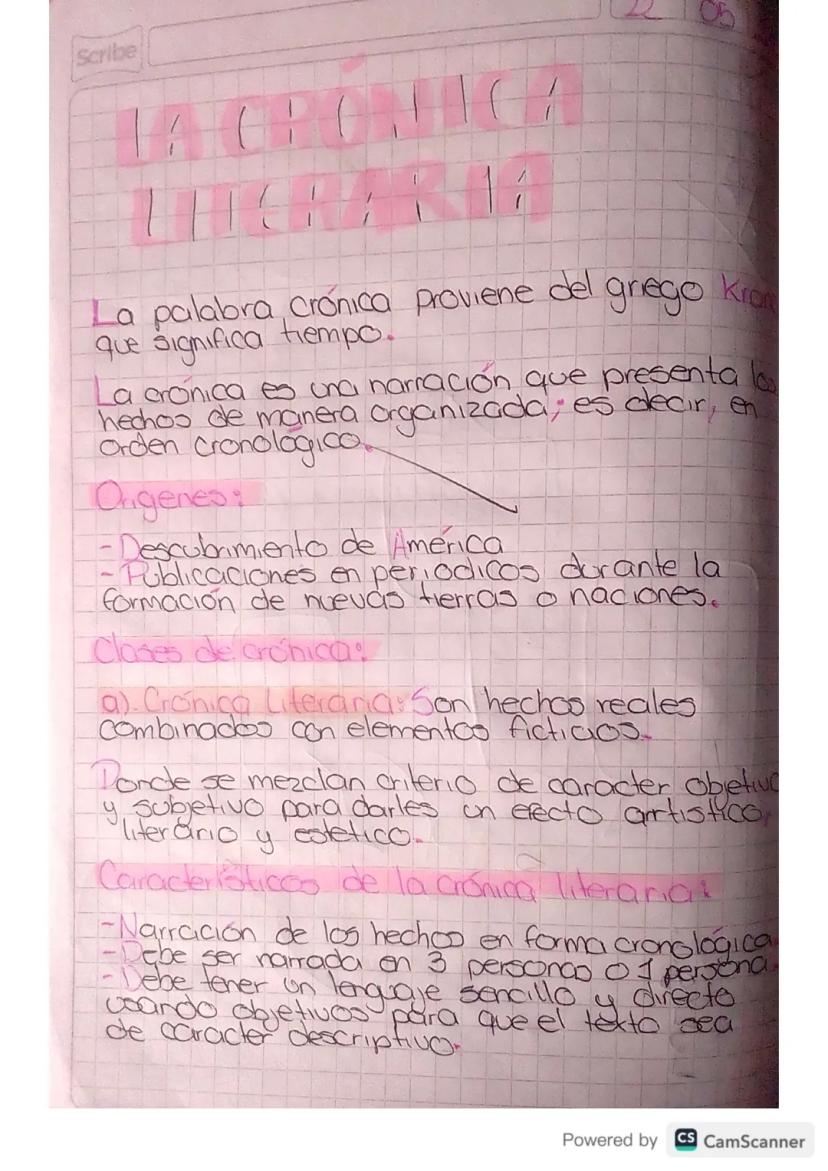 22 05
Scribe
LA CRÓNICA
LITERARIA
La palabra crónica proviene del grego Kron
que significa tiempo.
La crónica es una narración que presenta los
hechos de manera organizada; es decir, en
orden cronológico.
Origenes:
- Descubrimiento de América
- Publicaciones en periodicos durante la
formación de nuevas tierras o naciones.
Clases de crónica:
a). Crónica Literaria: Son hechos reales
combinados con elementos ficticios.
Donde se mezclan criterio de caracter objetivo
y subjetivo para darles un efecto artistico,
literario y estetico.
Características de la crónica literaria:
- Narración de los hechos en forma cronológica
- Debe ser narrada en 3 personas o 1 persona.
- Debe tener un lenguaje sencillo y directo
usando objetivos para que el texto sea
de caracter descriptivo.
Powered by CS CamScanner